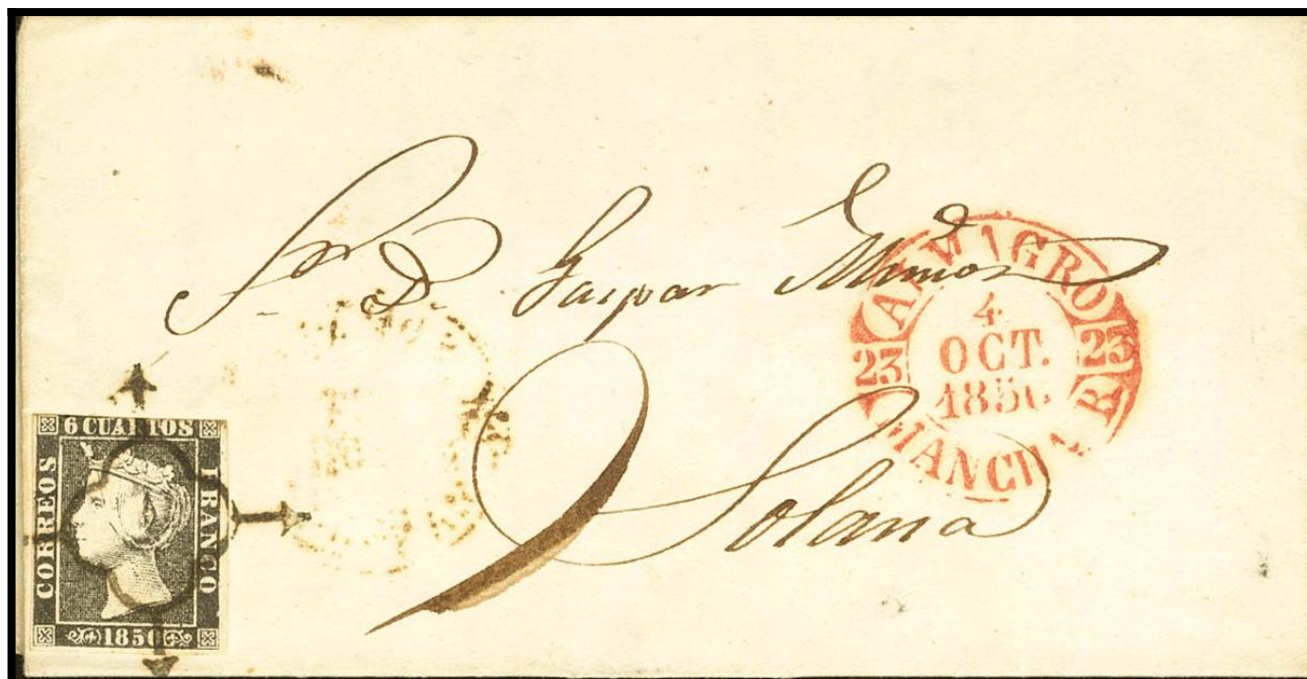 Sr. D. Gaspar
Solana
ALMAGRO
23
4
OCT.
1850
23
MANCHA B.
6 CUARTOS
CORREOS
FRANCO
1850